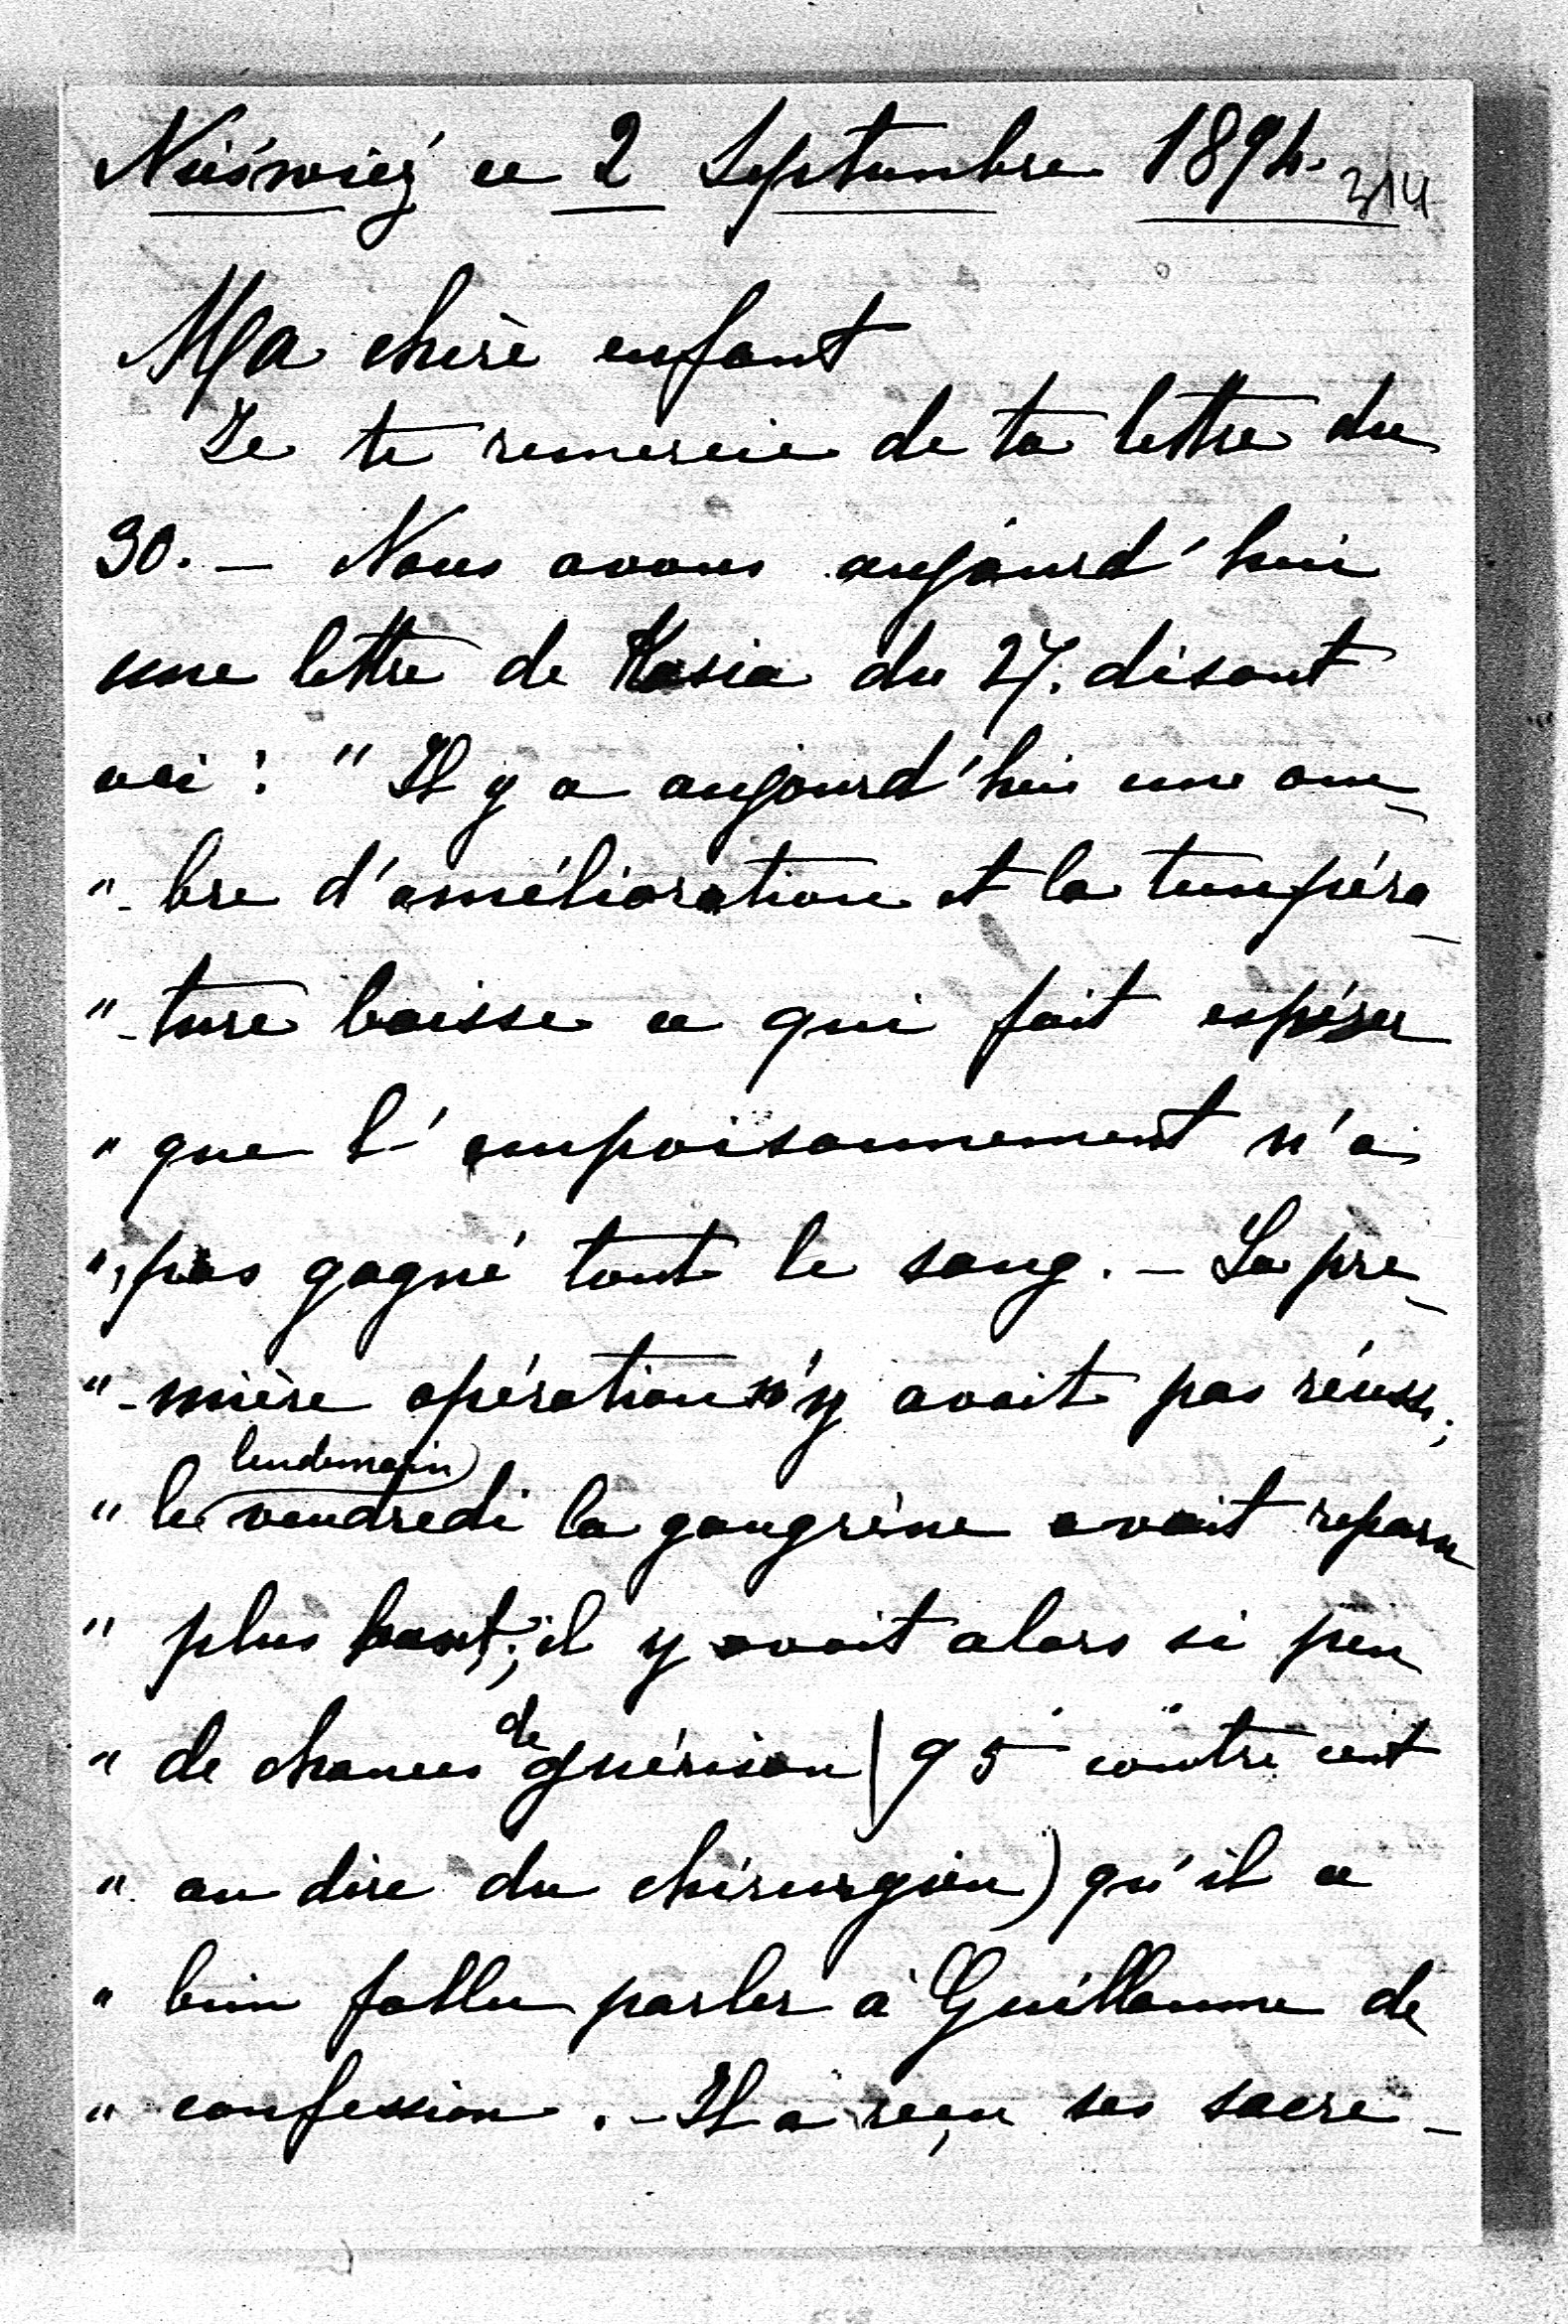 Nieśwież ce 2 Septembre 1894. 314
Ma chère enfant
Je te remercie de ta lettre du
30. — Nous avons aujourd'hui
une lettre de Kasia du 27. disant
ceci : " Il y a aujourd'hui une om-
" -bre d'amélioration et la tempéra-
" -ture baisse ce qui fait espérer
" que l'empoisonnement n'a
" pas gagné tout le sang. — La pre-
" -mière opération n'y avait pas réussi;
lendemain
" le vendredi la gangrène avait reparu
" plus haut; il y avait alors si peu
" de chances de guérison (95 contre cent
" au dire du chirurgien) qu'il a
" bien fallu parler à Guillaume de
" confession. — Il a reçu ses sacre-